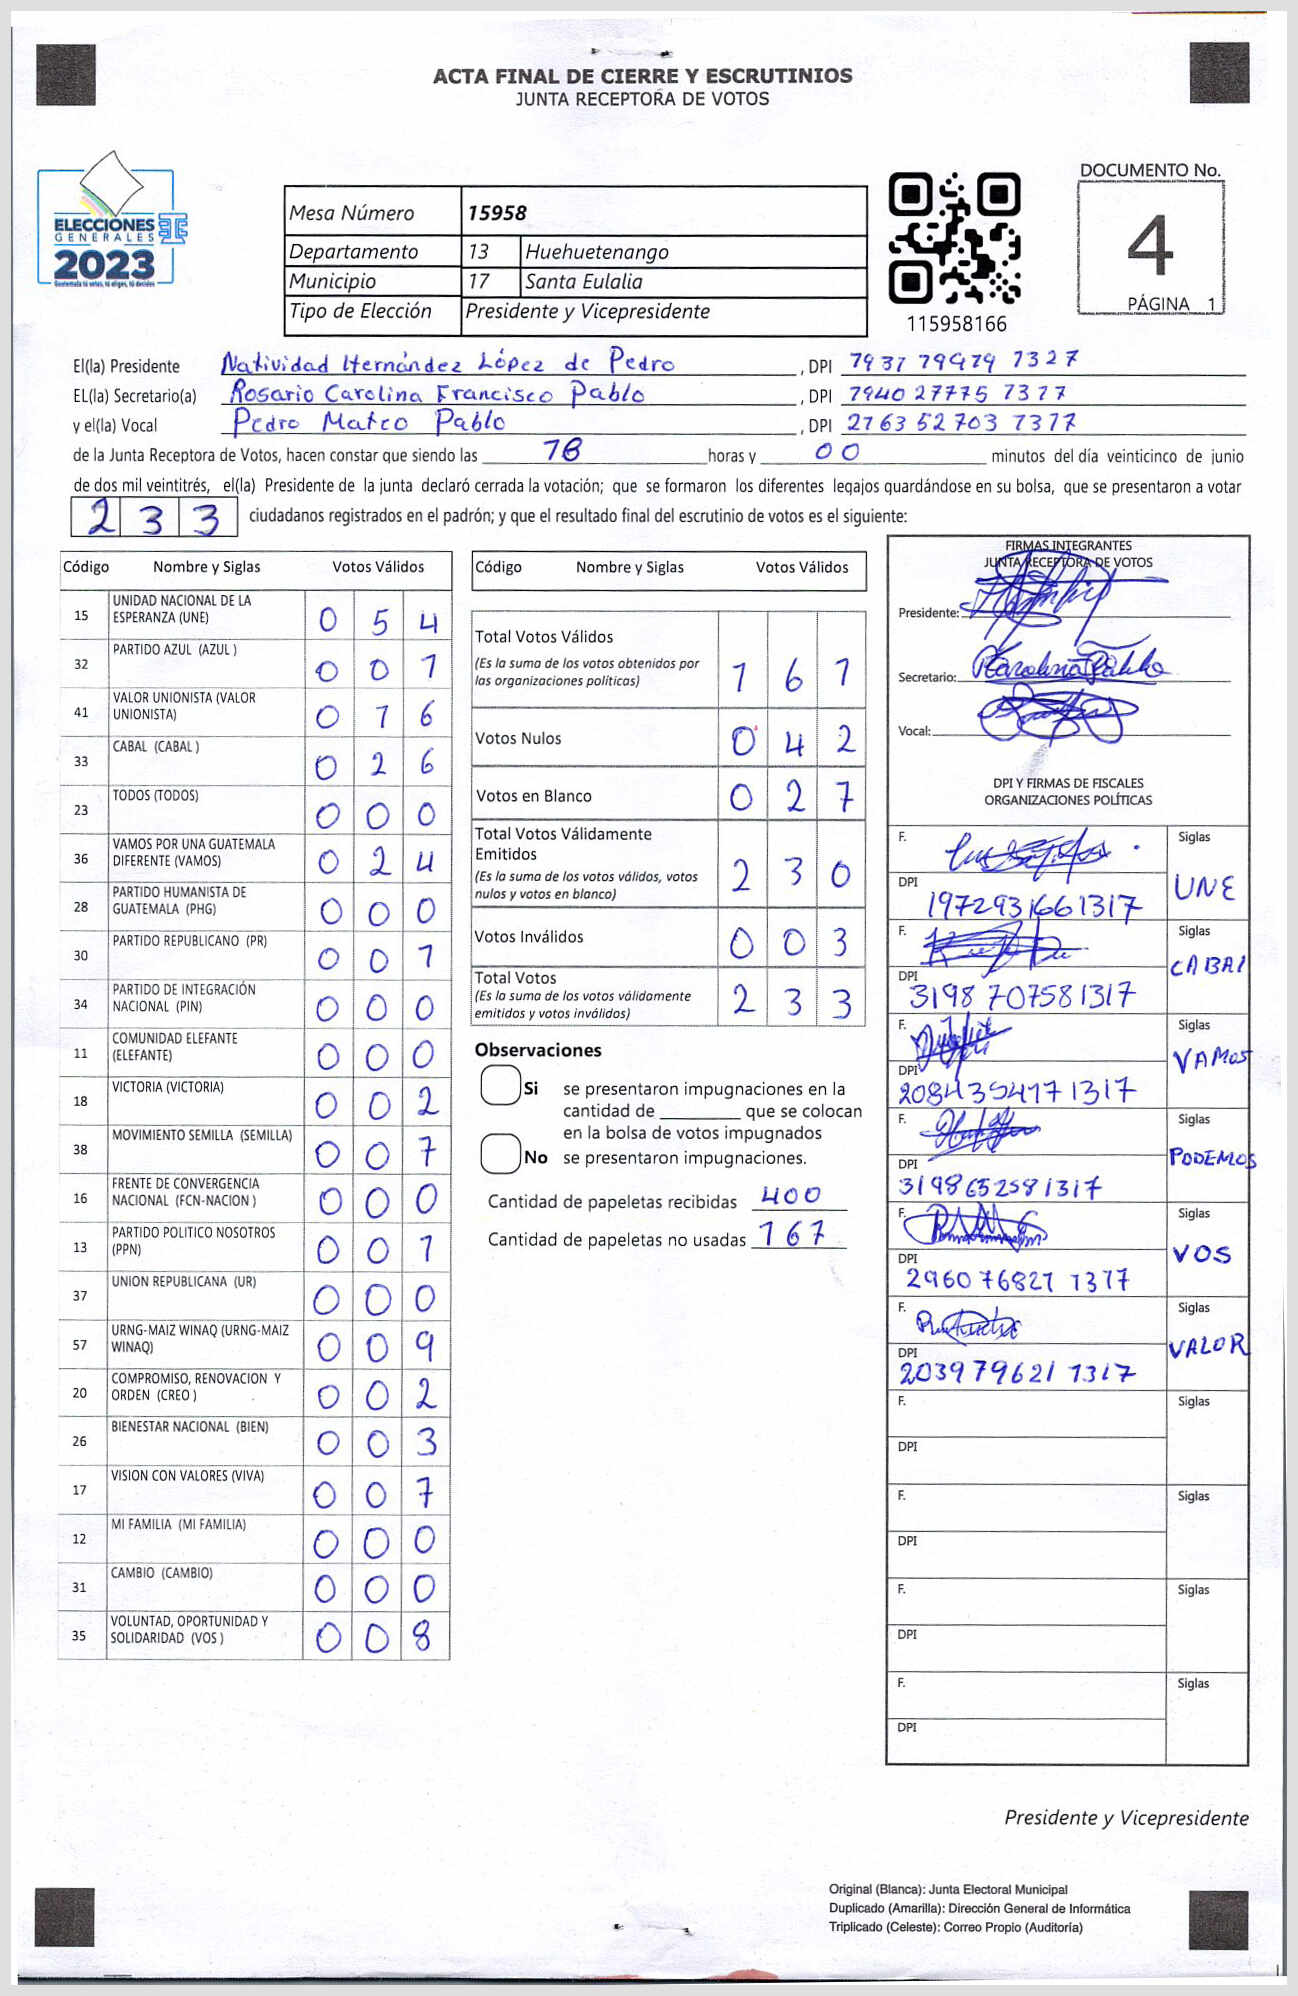 ACTA FINAL DE CIERRE Y ESCRUTINIOS
JUNTA RECEPTORA DE VOTOS
ELECCIONES
GENERALES
2023
Guatemala tú votas, tú eliges, tú decides
Mesa Número 15958
Departamento 13 Huehuetenango
Municipio 17 Santa Eulalia
Tipo de Elección Presidente y Vicepresidente
115958166
DOCUMENTO No.
4
PÁGINA 1
El(la) Presidente Natividad Hernández López de Pedro, DPI 7937 79979 1327
EL(la) Secretario(a) Rosario Carolina Francisco Pablo, DPI 7940 27775 7377
y el(la) Vocal Pedro Mateo Pablo, DPI 2763 52703 7377
de la Junta Receptora de Votos, hacen constar que siendo las 18 horas y 00 minutos del día veinticinco de junio
de dos mil veintitrés, el(la) Presidente de la junta declaró cerrada la votación; que se formaron los diferentes legajos guardándose en su bolsa, que se presentaron a votar
233 ciudadanos registrados en el padrón; y que el resultado final del escrutinio de votos es el siguiente:
Código Nombre y Siglas Votos Válidos
15 UNIDAD NACIONAL DE LA ESPERANZA (UNE) 0 5 4
32 PARTIDO AZUL (AZUL ) 0 0 1
41 VALOR UNIONISTA (VALOR UNIONISTA) 0 1 6
33 CABAL (CABAL ) 0 2 6
23 TODOS (TODOS) 0 0 0
36 VAMOS POR UNA GUATEMALA DIFERENTE (VAMOS) 0 2 4
28 PARTIDO HUMANISTA DE GUATEMALA (PHG) 0 0 0
30 PARTIDO REPUBLICANO (PR) 0 0 1
34 PARTIDO DE INTEGRACIÓN NACIONAL (PIN) 0 0 0
11 COMUNIDAD ELEFANTE (ELEFANTE) 0 0 0
18 VICTORIA (VICTORIA) 0 0 2
38 MOVIMIENTO SEMILLA (SEMILLA) 0 0 7
16 FRENTE DE CONVERGENCIA NACIONAL (FCN-NACION ) 0 0 0
13 PARTIDO POLITICO NOSOTROS (PPN) 0 0 1
37 UNION REPUBLICANA (UR) 0 0 0
57 URNG-MAIZ WINAQ (URNG-MAIZ WINAQ) 0 0 9
20 COMPROMISO, RENOVACION Y ORDEN (CREO ) 0 0 2
26 BIENESTAR NACIONAL (BIEN) 0 0 3
17 VISION CON VALORES (VIVA) 0 0 7
12 MI FAMILIA (MI FAMILIA) 0 0 0
31 CAMBIO (CAMBIO) 0 0 0
35 VOLUNTAD, OPORTUNIDAD Y SOLIDARIDAD (VOS ) 0 0 8
Código Nombre y Siglas Votos Válidos
Total Votos Válidos 1 6 1
(Es la suma de los votos obtenidos por
las organizaciones políticas)
Votos Nulos 0 4 2
Votos en Blanco 0 2 7
Total Votos Válidamente
Emitidos 2 3 0
(Es la suma de los votos válidos, votos
nulos y votos en blanco)
Votos Inválidos 0 0 3
Total Votos 2 3 3
(Es la suma de los votos válidamente
emitidos y votos inválidos)
Observaciones
Si se presentaron impugnaciones en la
cantidad de ________ que se colocan
en la bolsa de votos impugnados
No se presentaron impugnaciones.
Cantidad de papeletas recibidas 400
Cantidad de papeletas no usadas 167
FIRMAS INTEGRANTES
JUNTA RECEPTORA DE VOTOS
Presidente:
Secretario: Karolina Pablo
Vocal:
DPI Y FIRMAS DE FISCALES
ORGANIZACIONES POLÍTICAS
F. Siglas UNE
DPI 1972931661317
F. Siglas CABAL
DPI 3198 707581317
F. Siglas VAMOS
DPI 2084354171317
F. Siglas PODEMOS
DPI 3198652581317
F. Siglas VOS
DPI 2960 76821 1317
F. Siglas VALOR
DPI 203979621 1317
F. Siglas
DPI
F. Siglas
DPI
F. Siglas
DPI
F. Siglas
DPI
Presidente y Vicepresidente
Original (Blanca): Junta Electoral Municipal
Duplicado (Amarilla): Dirección General de Informática
Triplicado (Celeste): Correo Propio (Auditoría)